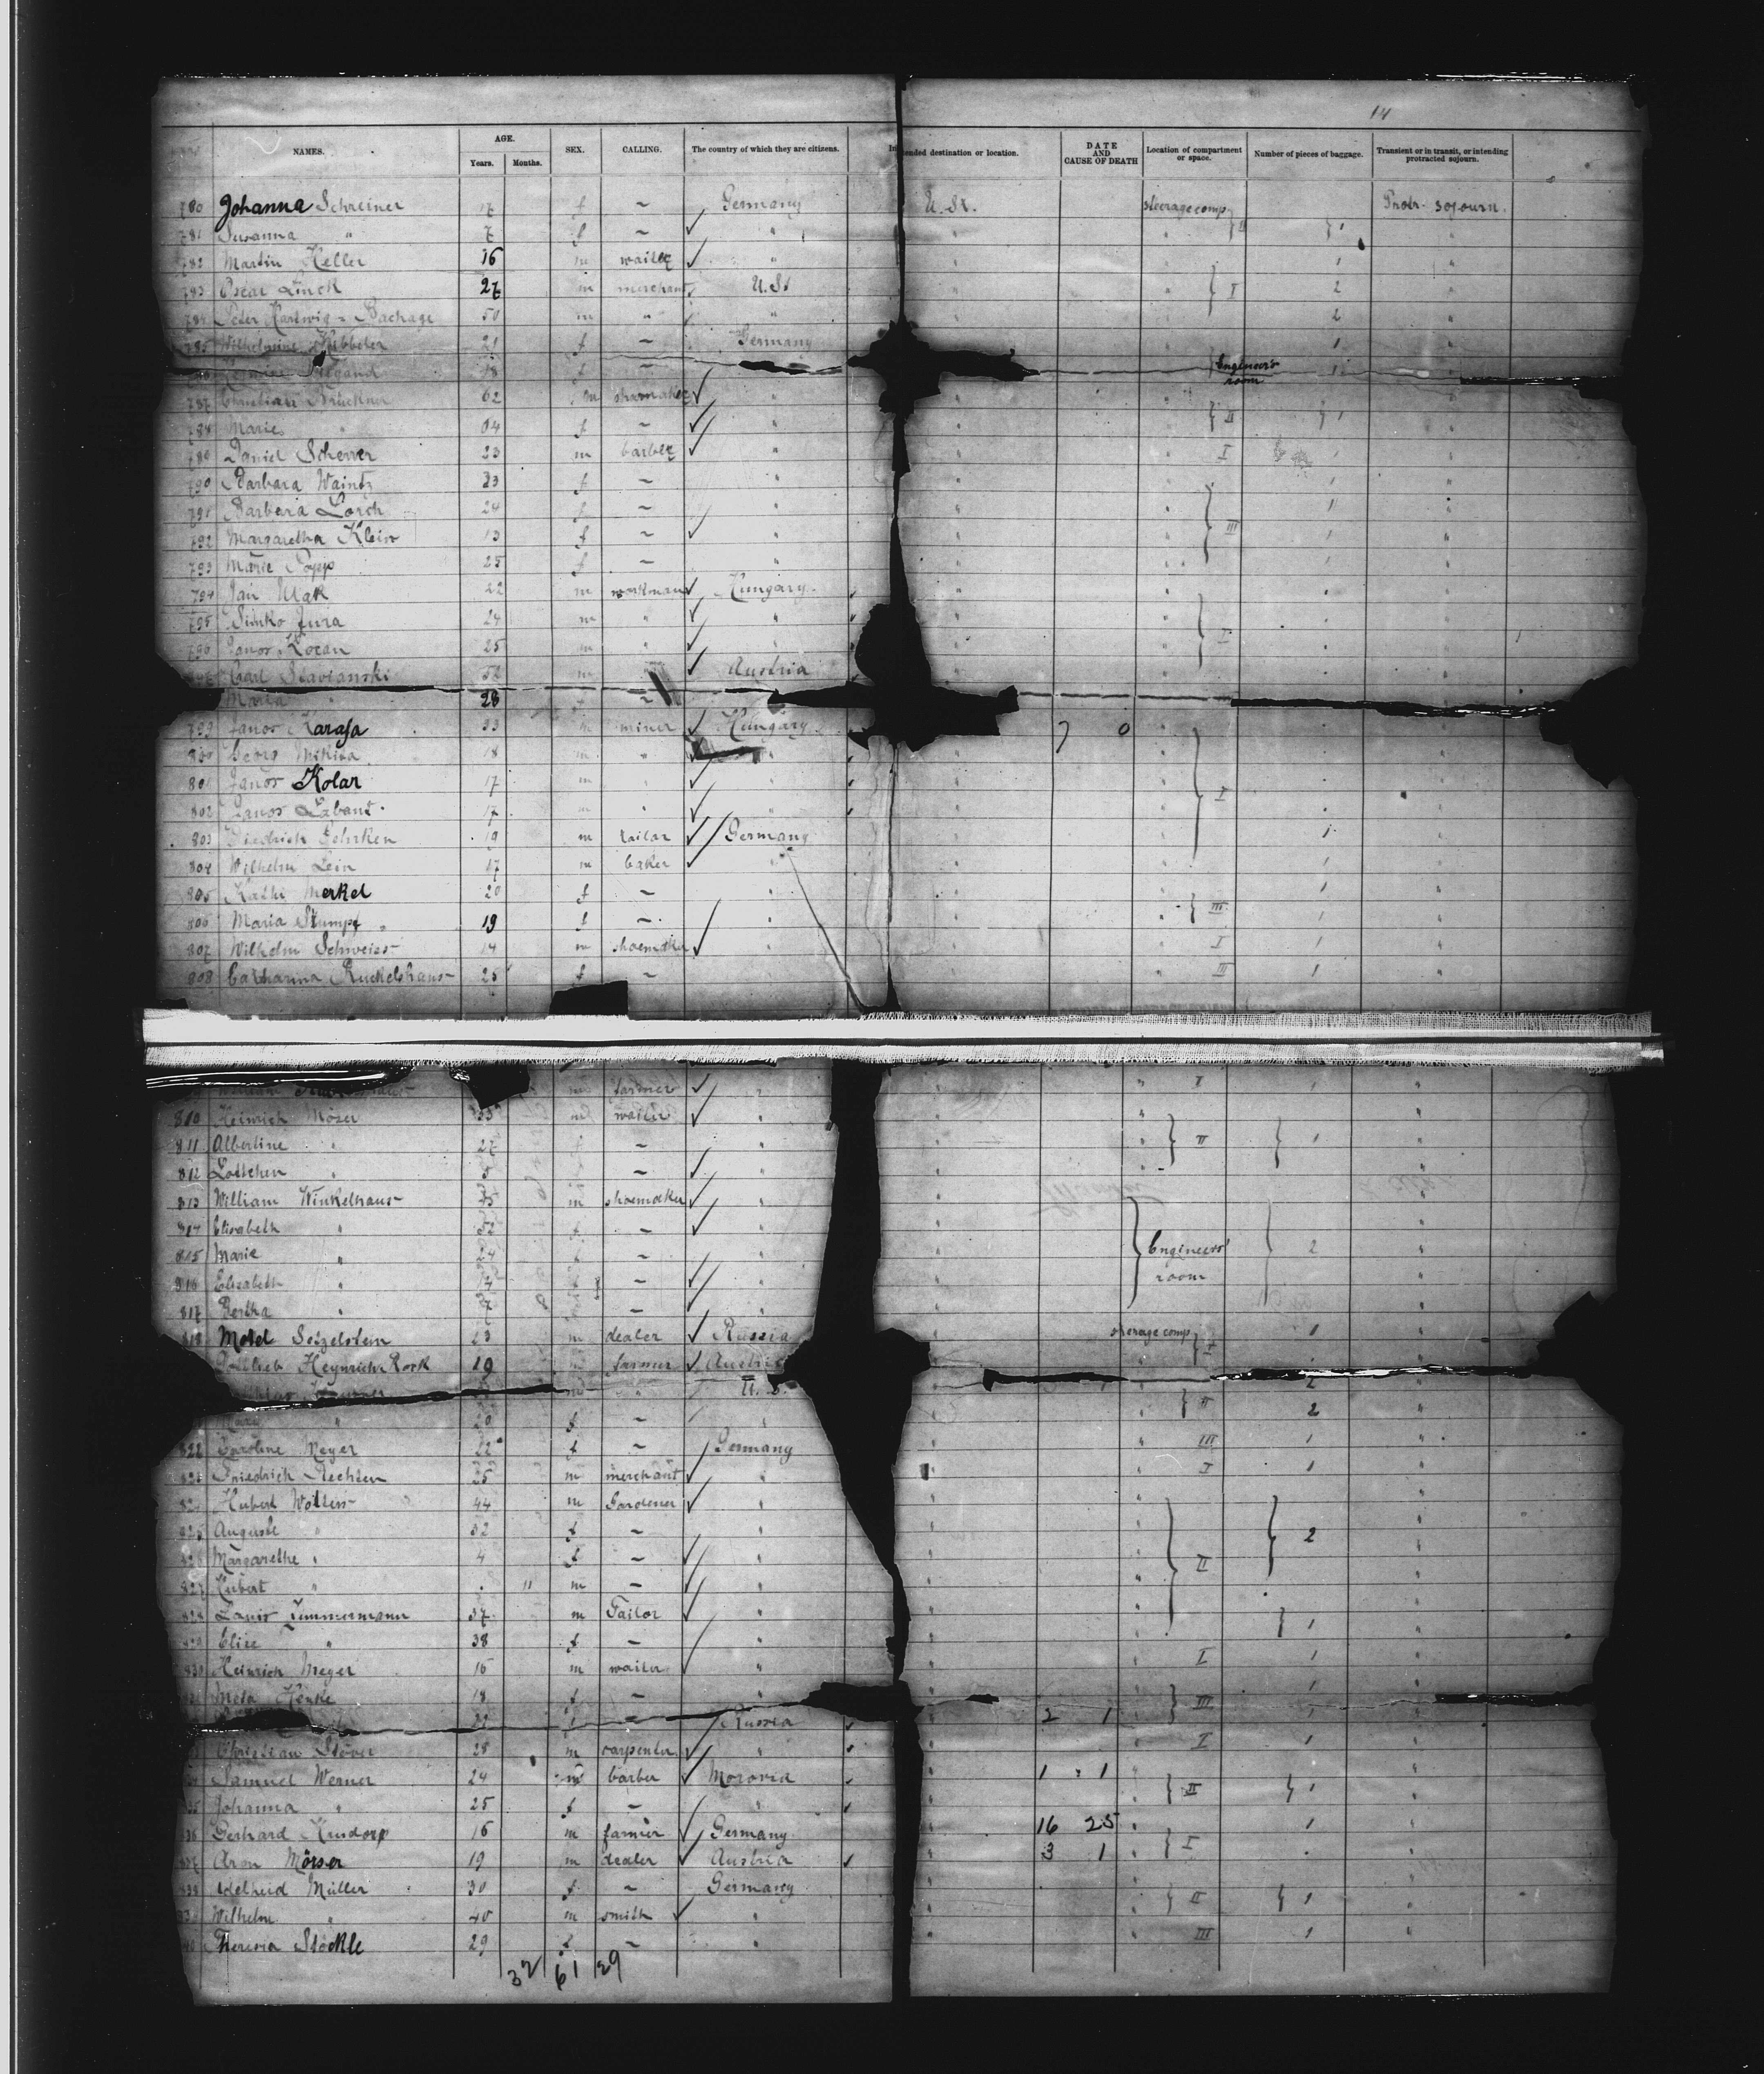 14
NAMES. AGE. Years. Months. SEX. CALLING. The country of which they are citizens. Intended destination or location. DATE AND CAUSE OF DEATH Location of compartment or space. Number of pieces of baggage. Transient or in transit, or intending protracted sojourn.
780 Johanna Schreiner 17 f ~ Germany U.St. steerage comp. Protr. sojourn.
781 Susanna " 7 f ~ " " " } II } 1 "
782 Martin Keller 16 m waiter " " " 1 "
783 Oscar Linck 27 m merchant U.St " " } I 2 "
784 Peter Hartwig 50 m " " " " 2 "
785 Wilhelmine 21 f ~ Germany " " 1 "
18 f ~ Engineer's room 1 "
787 62 m shoemaker " " " } II } 1 "
788 Marie " 64 f ~ " " " "
789 Daniel Scherrer 23 m barber " " " I 1 "
790 Barbara Waintz 23 f ~ " " " 1 "
791 Barbara Lorch 24 f ~ " " " } III 1 "
792 Margaretha Klein 13 f ~ " " " 1 "
793 Marie Popp 25 f ~ " " " 1 "
794 Jan Mak 22 m workman Hungary. " " "
795 Simko Jura 24 m " " " " } I "
796 Janos Kocan 25 m " " " " "
Carl Slavianski 52 m " Austria " " "
Maria " 28 f ~
799 Janos Karafa 33 m miner Hungary 7 0 " "
800 Georg Mikita 18 m " " " " "
801 Janos Kolar 17 m " " " " } I "
802 Janos Labant 17 m " " " " "
803 Diedrich Gehrken 19 m tailor Germany " " 1 "
804 Wilhelm Lein 17 m baker " " " 1 "
805 Kathi Merkel 20 f ~ " " " 1 "
806 Maria Stumpf 19 f ~ " " " } III 1 "
807 Wilhelm Schweiss 14 m shoemaker " " " I 1 "
808 Catharina Ruckelshaus 25 f ~ " " III 1 "
m farmer " " " I 1 "
810 Heinrich Moser 33 m waiter " " " "
811 Albertine " 27 f ~ " " " } II } 1 "
812 Lottchen " 5 ~ " " " "
813 William Winkelhaus 35 m shoemaker " " "
814 Elisabeth " 52 f ~ " " "
815 Marie " 24 f ~ " " } Engineers' room } 2 "
816 Elisabeth " 14 ~ " " "
817 Bertha " 7 ~ " " "
818 Motel Setzelstein 23 m dealer Russia " steerage comp. 1 "
Gottlieb Heynrich Rock 19 m farmer Austria " " } I "
m " U. S. 2 "
Mary " 20 f ~ " " " } II 2 "
822 Caroline Meyer 22 f ~ Germany " " III 1 "
823 Friedrich Aechten 25 m merchant " " " I 1 "
824 Hubert Wolters 44 m Gardener " " " "
825 Auguste " 32 f ~ " " " } 2 "
826 Margarethe " 4 f ~ " " " } II "
827 Hubert " . 11 m ~ " " " "
828 Louis Timmermann 37 m Tailor " " " } 1 "
829 Elise " 38 f ~ " " " "
830 Heinrich Meyer 16 m waiter " " " I 1 "
Meta Henke 18 f ~ " " " } III 1 "
22 f Russia " 2 1 " 1 "
Christian Stöver 28 m carpenter " " " I 1 "
Samuel Werner 24 m barber Moravia " 1 1 " } II } 1 "
Johanna " 25 f ~ " " " "
Gerhard 16 m farmer Germany " 16 25 " 1 "
Aron Mörser 19 m dealer Austria " 3 1 " } I "
Adelheid Müller 30 f ~ Germany " " } II } 1 "
Wilhelm " 40 m smith " " " "
Theresia Stöckle 29 f ~ " " " III 1 "
32 61 29